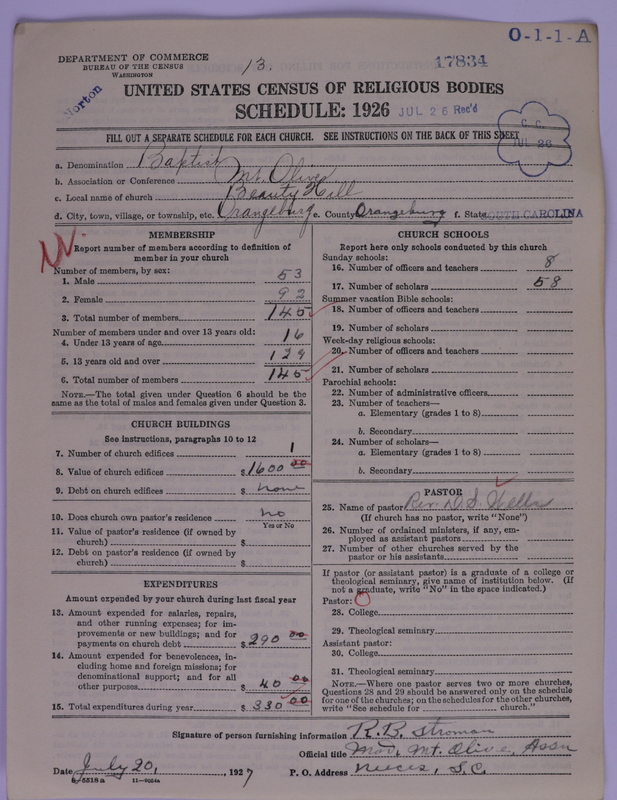 O-1-1-A
DEPARTMENT OF COMMERCE
BUREAU OF THE CENSUS
WASHINGTON
13.
17834
Norton
UNITED STATES CENSUS OF RELIGIOUS BODIES
SCHEDULE: 1926 JUL 26 Rec'd
C. C.
JUL 26
FILL OUT A SEPARATE SCHEDULE FOR EACH CHURCH. SEE INSTRUCTIONS ON THE BACK OF THIS SHEET
a. Denomination Baptist
b. Association or Conference Mt. Olive
c. Local name of church Beauty Hill
d. City, town, village, or township, etc. Orangeburg e. County Orangeburg f. State SOUTH CAROLINA
MEMBERSHIP
Report number of members according to definition of
member in your church
Number of members, by sex:
1. Male 53
2. Female 92
3. Total number of members 145
Number of members under and over 13 years old:
4. Under 13 years of age 16
5. 13 years old and over 129
6. Total number of members 145
NOTE.—The total given under Question 6 should be
same as the total of males and females given under Question 3.
CHURCH BUILDINGS
See instructions, paragraphs 10 to 12
7. Number of church edifices 1
8. Value of church edifices $1600 00
9. Debt on church edifices $ none
10. Does church own pastor's residence no
Yes or No
11. Value of pastor's residence (if owned by
church) $
12. Debt on pastor's residence (if owned by
church) $
EXPENDITURES
Amount expended by your church during last fiscal year
13. Amount expended for salaries, repairs,
and other running expenses; for im-
provements or new buildings; and for
payments on church debt $290 00
14. Amount expended for benevolences, in-
cluding home and foreign missions; for
denominational support; and for all
other purposes $ 40 00
15. Total expenditures during year $ 330 00
CHURCH SCHOOLS
Report here only schools conducted by this church
Sunday schools:
16. Number of officers and teachers 8
17. Number of scholars 58
Summer vacation Bible schools:
18. Number of officers and teachers
19. Number of scholars
Week-day religious schools:
20. Number of officers and teachers
21. Number of scholars
Parochial schools:
22. Number of administrative officers
23. Number of teachers—
a. Elementary (grades 1 to 8)
b. Secondary
24. Number of scholars—
a. Elementary (grades 1 to 8)
b. Secondary
PASTOR
25. Name of pastor Rev. D. S. Wells
(If church has no pastor, write "None")
26. Number of ordained ministers, if any, em-
ployed as assistant pastors
27. Number of other churches served by the
pastor or his assistants
If pastor (or assistant pastor) is a graduate of a college or
theological seminary, give name of institution below. (If
not a graduate, write "No" in the space indicated.)
Pastor:
28. College
29. Theological seminary
Assistant pastor:
30. College
31. Theological seminary
NOTE.—Where one pastor serves two or more churches,
Questions 28 and 29 should be answered only on the schedule
for one of the churches; on the schedules for the other churches,
write "See schedule for church."
Signature of person furnishing information R. B. Stroman
Official title Mod. Mt. Olive, Assn
Date July 20, 1927 P. O. Address Neeces, S. C.
8-5318a 11-9264a